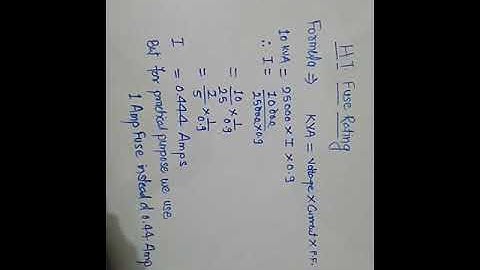 HT Fuse Rating
Formula ⇒ KVA = Voltage × Current × P.F.
10 KVA = 25000 × I × 0.9
∴ I = 10000 / 25000 × 0.9
= 10/25 × 1/0.9
= 2/5 × 1/0.9
I = 0.444 Amps
But for practical purpose we use
1 Amp Fuse instead of 0.44 Amp